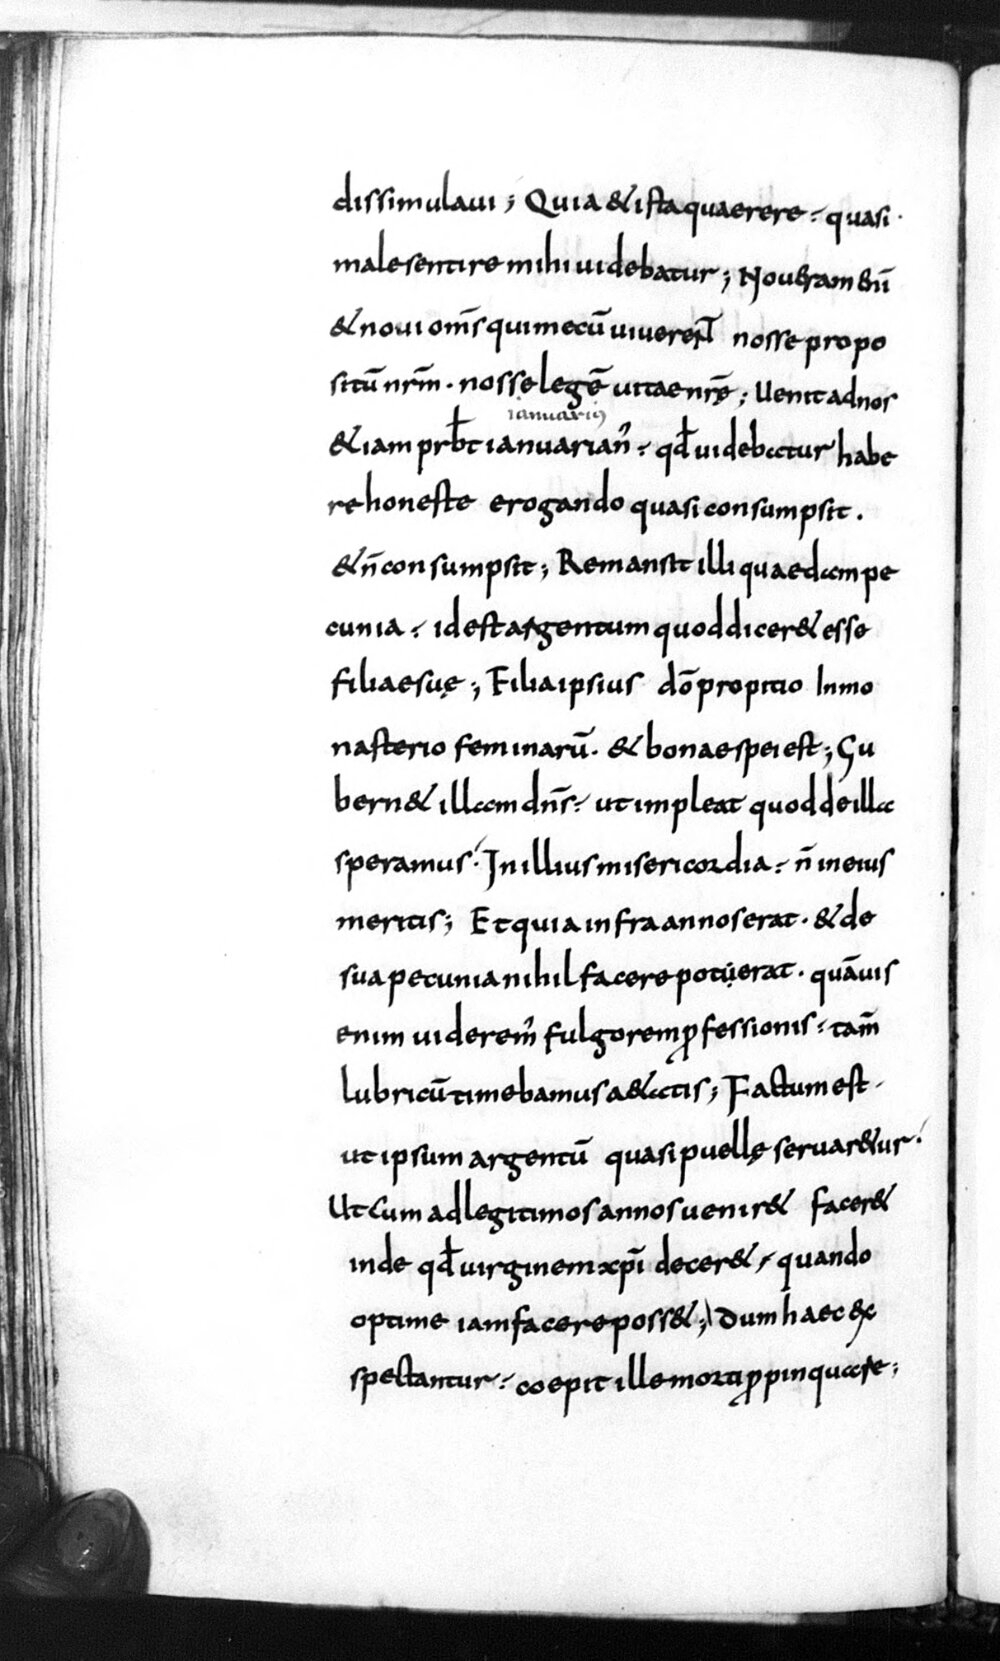 dissimulaui; Quia & ista quaerere quasi
male sentire mihi uidebatur; Noueram eni̅
& noui om̅s qui mecu̅ uiuere̅t nosse propo
situ̅ nr̅m. nosse lege̅ uitae nr̅ę; Uenit ad nos
ianuarius
& iam prb̅t ianuarian᾽. qd̅ uidebatur habe
re honeste erogando quasi consumpsit.
& n̅ consumpsit; Remansit illi quaedam pe
cunia. id est argentum quod dicer& esse
filiae suę; Filia ipsius do̅ propitio In mo
nasterio feminaru̅. & bonae spei est; Gu
bern& illam dn̅s. ut impleat quod de illa
speramus. In illius misericordia. n̅ in eius
meritis; Et quia infra annos erat. & de
sua pecunia nihil facere potuerat. qua̅uis
enim uiderem᾽ fulgorem ꝓfessionis. tam̅
lubricu̅ timebamus a&atis; Factum est
ut ipsum argentu̅ quasi puellę seruar&ur.
Ut cum ad legitimos annos uenir& facer&
inde qd̅ uirginem xp̅i decer&, quando
optime iam facere poss&; Dum haec ex
spectantur. coepit ille morti ꝓpinquare;